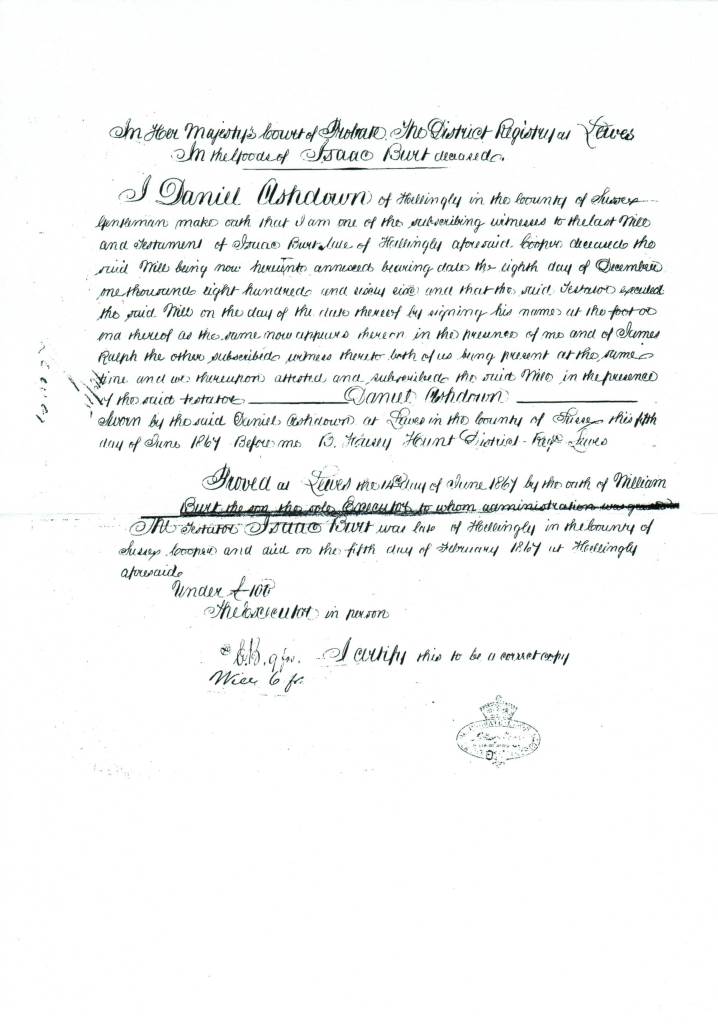 In Her Majesty's Court of Probate. The District Registry at Lewes
In the Goods of Isaac Burt deceased.
I Daniel Ashdown of Hellingly in the County of Sussex
Gentleman make oath that I am one of the subscribing witnesses to the last Will
and Testament of Isaac Burt late of Hellingly aforesaid Cooper deceased the
said Will being now hereunto annexed bearing date the eighth day of December
one thousand eight hundred and sixty six and that the said Testator executed
the said Will on the day of the date thereof by signing his name at the foot or
end thereof as the same now appears thereon in the presence of me and of James
Ralph the other subscribed witness thereto both of us being present at the same
time and we thereupon attested and subscribed the said Will in the presence
of the said testator Daniel Ashdown
Sworn by the said Daniel Ashdown at Lewes in the County of Sussex this fifth
day of June 1867 Before me B. Hunt District Lewes
Proved at Lewes the 14th day of June 1867 by the oath of William
Burt the son the sole Executor to whom administration was granted
The Testator Isaac Burt was late of Hellingly in the County of
Sussex Cooper and died on the fifth day of February 1867 at Hellingly
aforesaid
Under £100
The Executor in person
I certify this to be a correct copy
Will 6 fs.